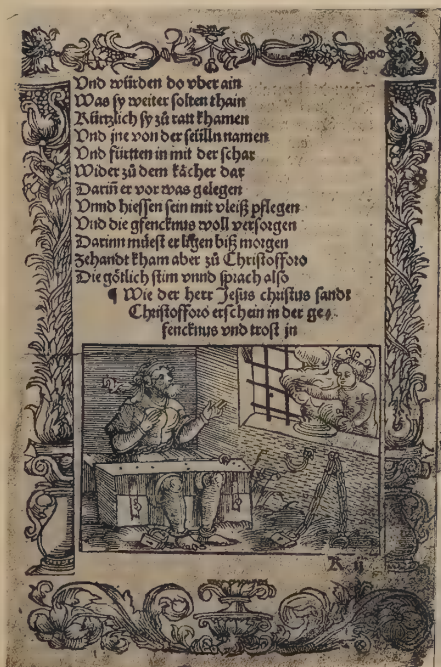 Vnd würden do vber ain
Was sy weiter solten thain
Kürtzlich sy zů ratt khamen
Vnd jne von der seülln namen
Vnd fürtten in mit der schar
Wider zů dem kächer dar
Dariñ er vor was gelegen
Vnnd hiessen sein mit vleiß pflegen
Vnd die gfencknus woll versorgen
Darinn müest er ligen biß morgen
Zehandt kham aber zů Christofforo
Die götlich stim vnnd sprach also
¶ Wie der herr Jesus christus sandt
Christofforo erschein in der ge⸗
fencknus vnd trost jn
K ij